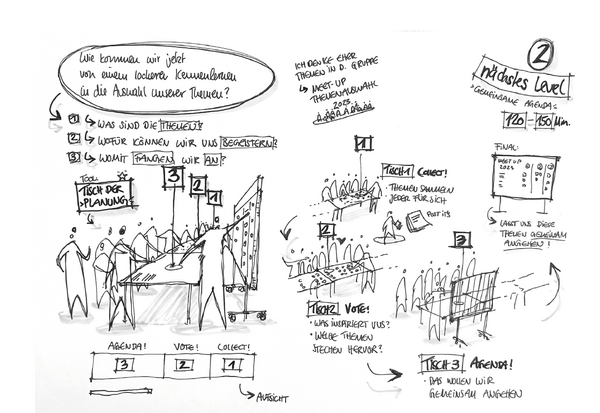 Wie kommen wir jetzt
von einem lockeren Kennenlernen
in die Auswahl unserer Themen?
1 WAS SIND DIE THEMEN?
2 WOFÜR KÖNNEN WIR UNS BEGEISTERN?
3 WOMIT FANGEN WIR AN?
TOOL:
TISCH DER
PLANUNG
3
2
1
AGENDA! VOTE! COLLECT!
3 2 1
AUFSICHT
ICH DENKE EHER
THEMEN IN D. GRUPPE
MEET-UP
THEMENAUSWAHL
2025
1
TISCH 1 COLLECT!
THEMEN SAMMELN
JEDER FÜR SICH
POST ITS
2
TISCH 2 VOTE!
WAS INSPIRIERT UNS?
WELCHE THEMEN
STECHEN HERVOR?
3
TISCH 3 AGENDA!
DAS WOLLEN WIR
GEMEINSAM ANGEHEN
2
nächstes Level
GEMEINSAME AGENDA
120 - 150 Min.
FINAL:
MEET UP
2025
LASST UNS DIESE
THEMEN GEMEINSAM
ANGEHEN!